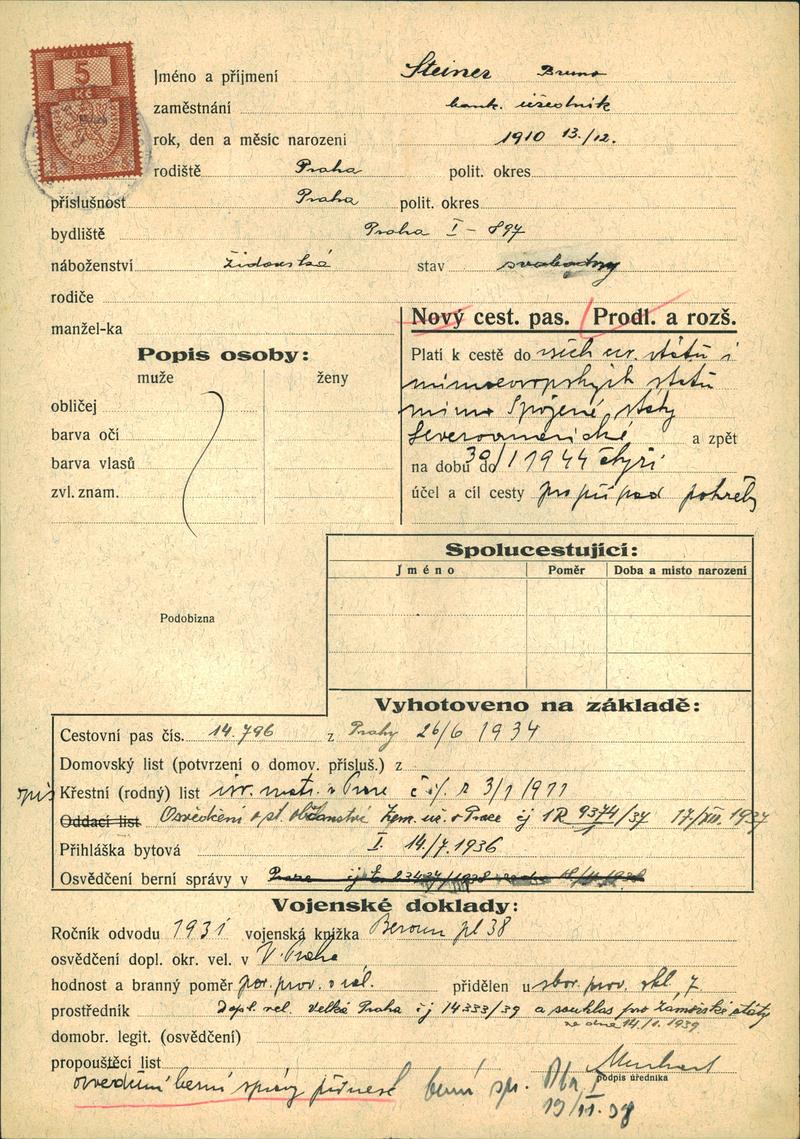 5
Kč
Jméno a příjmení Steiner Bruno
zaměstnání bank. úředník
rok, den a měsíc narozeni 1910 13./12.
rodiště Praha polit. okres
příslušnost Praha polit. okres
bydliště Praha I – 897
náboženství židovská stav svobodný
rodiče
manžel-ka
Nový cest. pas. Prodl. a rozš.
Popis osoby:
muže ženy
obličej
barva očí
barva vlasů
zvl. znam.
Platí k cestě do všech ev. států i
mimoevropských států
mimo Spojené státy
Severoamerické a zpět
na dobu do 30/1 1944 čtyři
účel a cíl cesty pro případ potřeby
Spolucestující:
Jméno Poměr Doba a misto narození
Podobizna
Vyhotoveno na základě:
Cestovní pas čís. 14.796 z Prahy 26/6 1934
Domovský list (potvrzení o domov. přísluš.) z
Křestní (rodný) list isr. matr. v Praze z 3/1 1911
Oddací list Osvědčení o st. občanství Zem. úř. v Praze čj 1R 9374/37 17/XII. 1937
Přihláška bytová I. 14./7. 1936
Osvědčení berní správy v
Vojenské doklady:
Ročník odvodu 1931 vojenská knížka Beroun pl 38
osvědčení dopl. okr. vel. v V. Praha
hodnost a branný poměr por. prov. v zál. přidělen u sbor. prov. skl. 7
prostředník Dopl. vel. Velká Praha čj 14333/39 a souhlas pro zámořské státy
ze dne 14./1. 1939
domobr. legit. (osvědčení)
propouštěcí list
podpis úředníka
osvědčení berní správy přinese berní spr.
19/II. 38